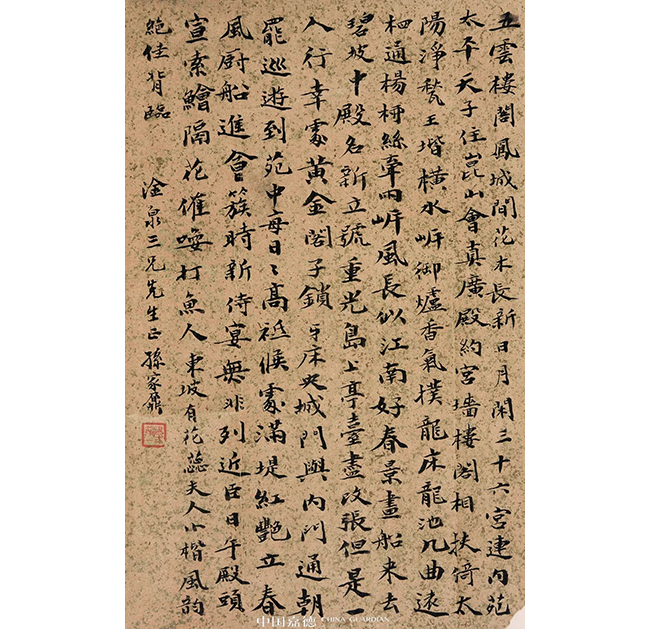 五雲樓閣鳳城間花木長新日月閑三十六宮連內苑
太平天子住崑山會真廣殿約宮墻樓閣相扶倚太
陽淨甃玉堦橫水岍御爐香氣撲龍床龍池九曲遠
相通楊柳絲牽兩岍風長似江南好春景畫船來去
碧波中殿名新立號重光島上亭臺盡改張但是一
人行幸處黃金閣子鎖牙床夾城門與內門通朝
罷巡遊到苑中每日日高祗候處滿堤紅艷立春
風厨船進食簇時新侍宴無非列近臣日午殿頭
宣索鱠隔花催喚打魚人東坡有花蕊夫人小楷風韵
絕佳背臨
淦泉三兄先生正孫家鼐
中国嘉德 CHINA GUARDIAN